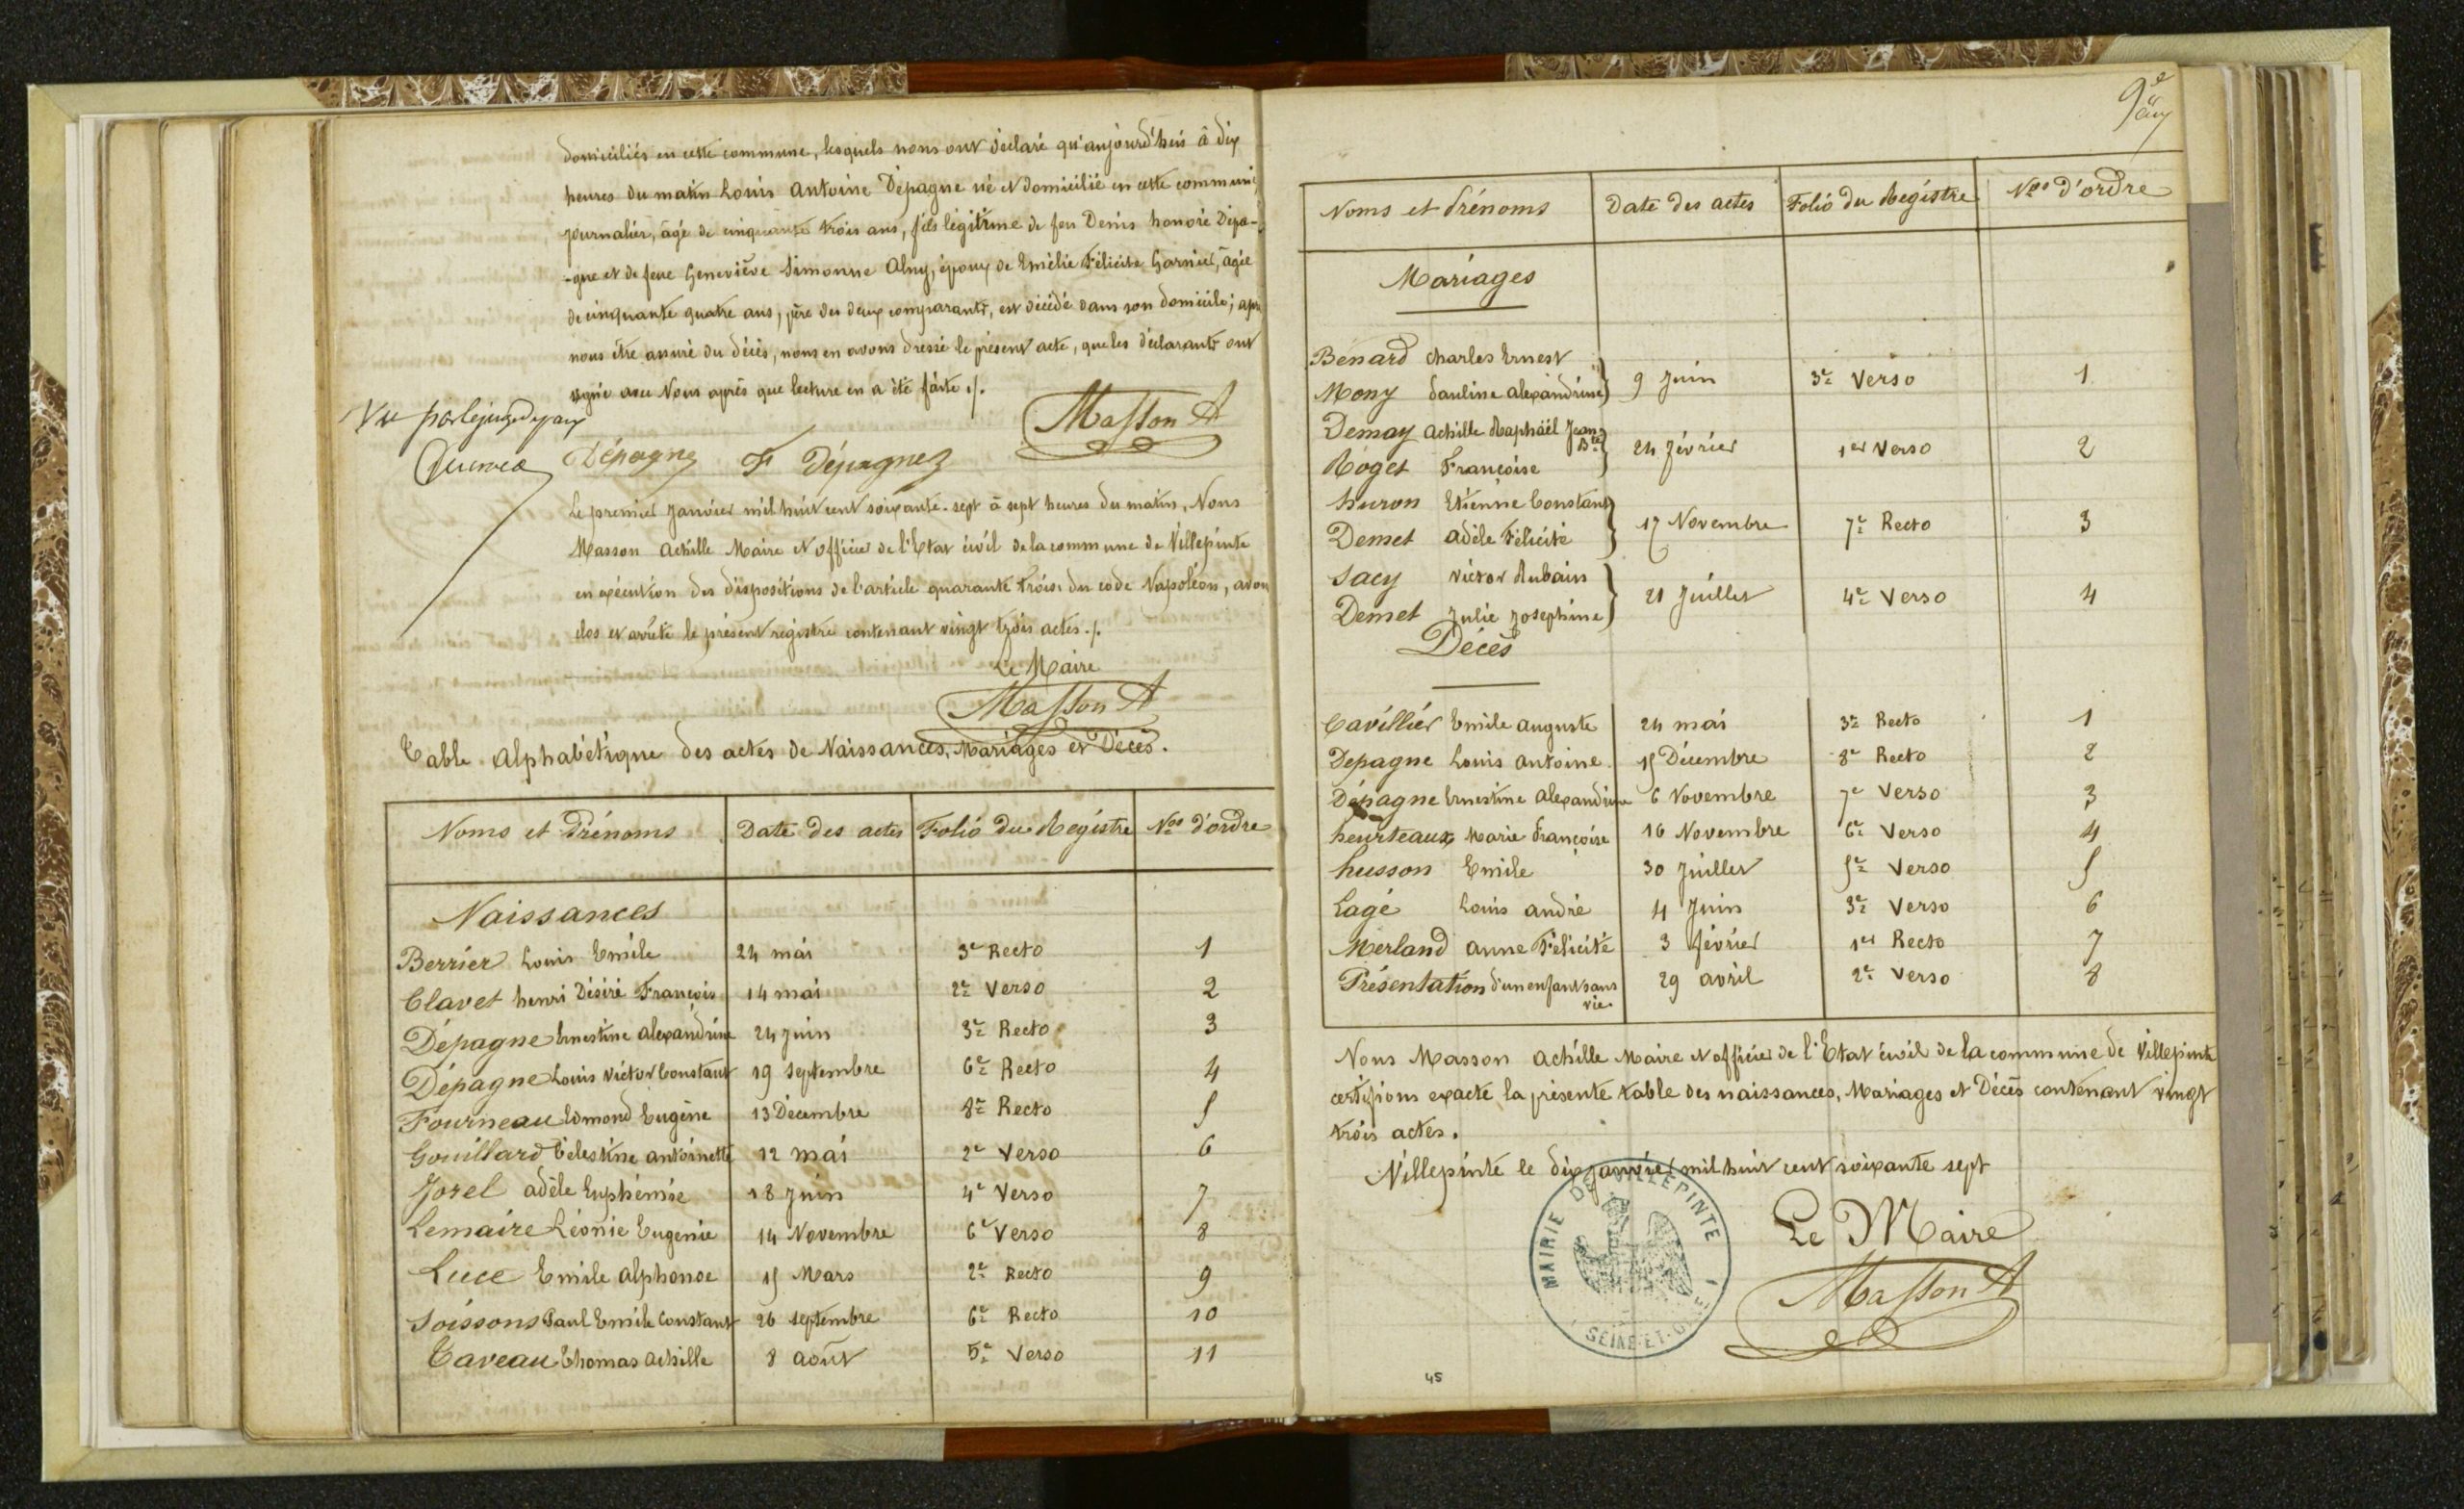 domiciliés en cette commune, lesquels nous ont déclaré qu'aujourd'hui à dix
heures du matin Louis Antoine Dépagne né et domicilié en cette commune
journalier, âgé de cinquante trois ans, fils légitime de feu Denis honoré Dépa-
-gne et de feue Geneviève Simonne Alny, époux de Emélie Félicité Garnier, âgée
de cinquante quatre ans, père des deux comparants, est décédé dans son domicile; après
nous être assuré du décès, nous en avons dressé le présent acte, que les déclarants ont
signé avec Nous après que lecture en a été faite ./.
Vu par le juge de paix
Masson A
Dépagne F Dépagnez
Le premier Janvier mil huit cent soixante-sept à sept heures du matin, Nous
Masson Achille Maire et officier de l'Etat civil de la commune de Villepinte
en exécution des dispositions de l'article quarante trois du code Napoléon, avons
clos et arrêté le présent registre contenant vingt trois actes ./.
Le Maire
Masson A
Table Alphabétique des actes de Naissances, Mariages et Décès.
Noms et Prénoms Date des actes Folio du Registre Nos d'ordre
Naissances
Berrier Louis Emile 24 mai 3e Recto 1
Clavet henri Désiré François 14 mai 2e Verso 2
Dépagne Ernestine Alexandrine 24 juin 3e Recto 3
Dépagne Louis Victor Constant 19 septembre 6e Recto 4
Fourneau Edmond Eugène 13 Décembre 8e Recto 5
Gouillard Célestine antoinette 12 mai 2e Verso 6
Jorel adèle Euphémie 18 juin 4e Verso 7
Lemaire Léonie Eugenie 14 Novembre 6e Verso 8
Luce Emile Alphonse 15 Mars 2e Recto 9
Soissons Paul Emile Constant 26 septembre 6e Recto 10
Taveau Thomas Achille 8 août 5e Verso 11
9e
Noms et Prénoms Date des actes Folio du Registre Nos d'ordre
Mariages
Bénard Charles Ernest
Mony Pauline alexandrine 9 Juin 3e Verso 1
Demay Achille Raphaël Jean Bte
Roget Françoise 24 février 1er Verso 2
huron Etienne Constant
Demet Adèle Félicité 17 Novembre 7e Recto 3
Sacy victor Aubain
Demet Julie Josephine 21 Juillet 4e Verso 4
Décès
Cavillier Emile auguste 24 mai 3e Recto 1
Depagne Louis antoine 15 Décembre 8e Recto 2
Dépagne Ernestine Alexandrine 6 Novembre 7e Verso 3
heurteaux Marie Françoise 16 Novembre 6e Verso 4
husson Emile 30 Juillet 5e Verso 5
Lagé Louis andré 4 Juin 3e Verso 6
Merland anne Félicité 3 février 1er Recto 7
Présentation d'un enfant sans vie 29 avril 2e Verso 8
Nous Masson Achille Maire et officier de l'Etat civil de la commune de Villepinte
certifions exacte la présente table des naissances, Mariages et Décès contenant vingt
trois actes.
Villepinte le dix janvier mil huit cent soixante sept
MAIRIE DE VILLEPINTE
SEINE-ET-OISE
Le Maire
Masson A
45